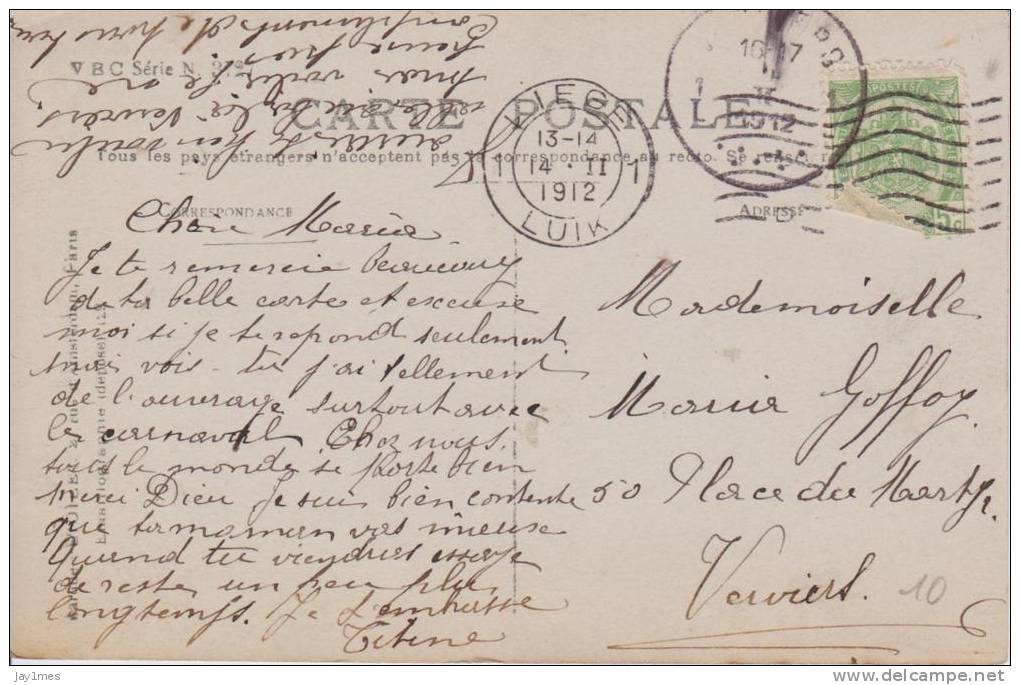 VBC Série N
CARTE POSTALE
Tous les pays étrangers n'acceptent pas la correspondance au recto. Se renseigner
CORRESPONDANCE
ADRESSE
LIEGE
13-14
1 14·II 1
1912
LUIK
16-17
1912
POSTES
Chère Maria
Je te remercie beaucoup
de ta belle carte et excuse
moi si je te repond seulement
mais vois-tu j'ai tellement
de l'ouvrage surtout avec
le carnaval Chez nous
tous le monde se porte bien
merci Dieu Je suis bien contente
que ta maman vas mieuse
Quand tu viendras essaye
de reste un peu plus
longtemps. Je t'embrasse
Titine
Mademoiselle
Maria Goffoy
50 Place du Martyr
Verviers.
10
jay1mes
delcampe.net